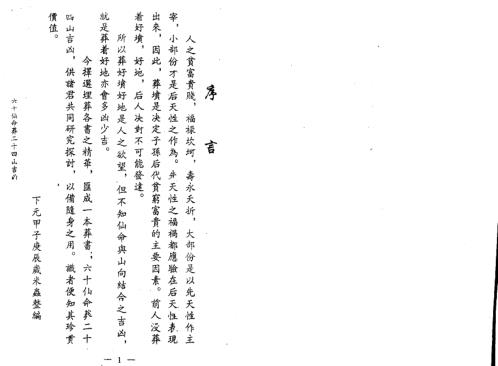 序言
人之貧富貴賤，福祿坎坷，壽永夭折，大部份是以先天性作主
宰，小部份才是后天性之作為。先天性之福禍都應驗在后天性表現
出來，因此，葬墳是決定子孫后代貧窮富貴的主要因素。前人没葬
着好墳，好地，后人决對不可能發達。
所以葬好墳好地是人之欲望，但不知仙命與山向結合之吉凶，
就是葬着好地亦會多凶少吉。
今擇選埋葬各書之精華，匯成一本葬書；六十仙命葬二十
四山吉凶，供諸君共同研究探討，以備隨身之用。識者便知其珍貴
價值。
下元甲子庚辰歲米蟲整編
六十仙命葬二十四山吉凶
— 1 —